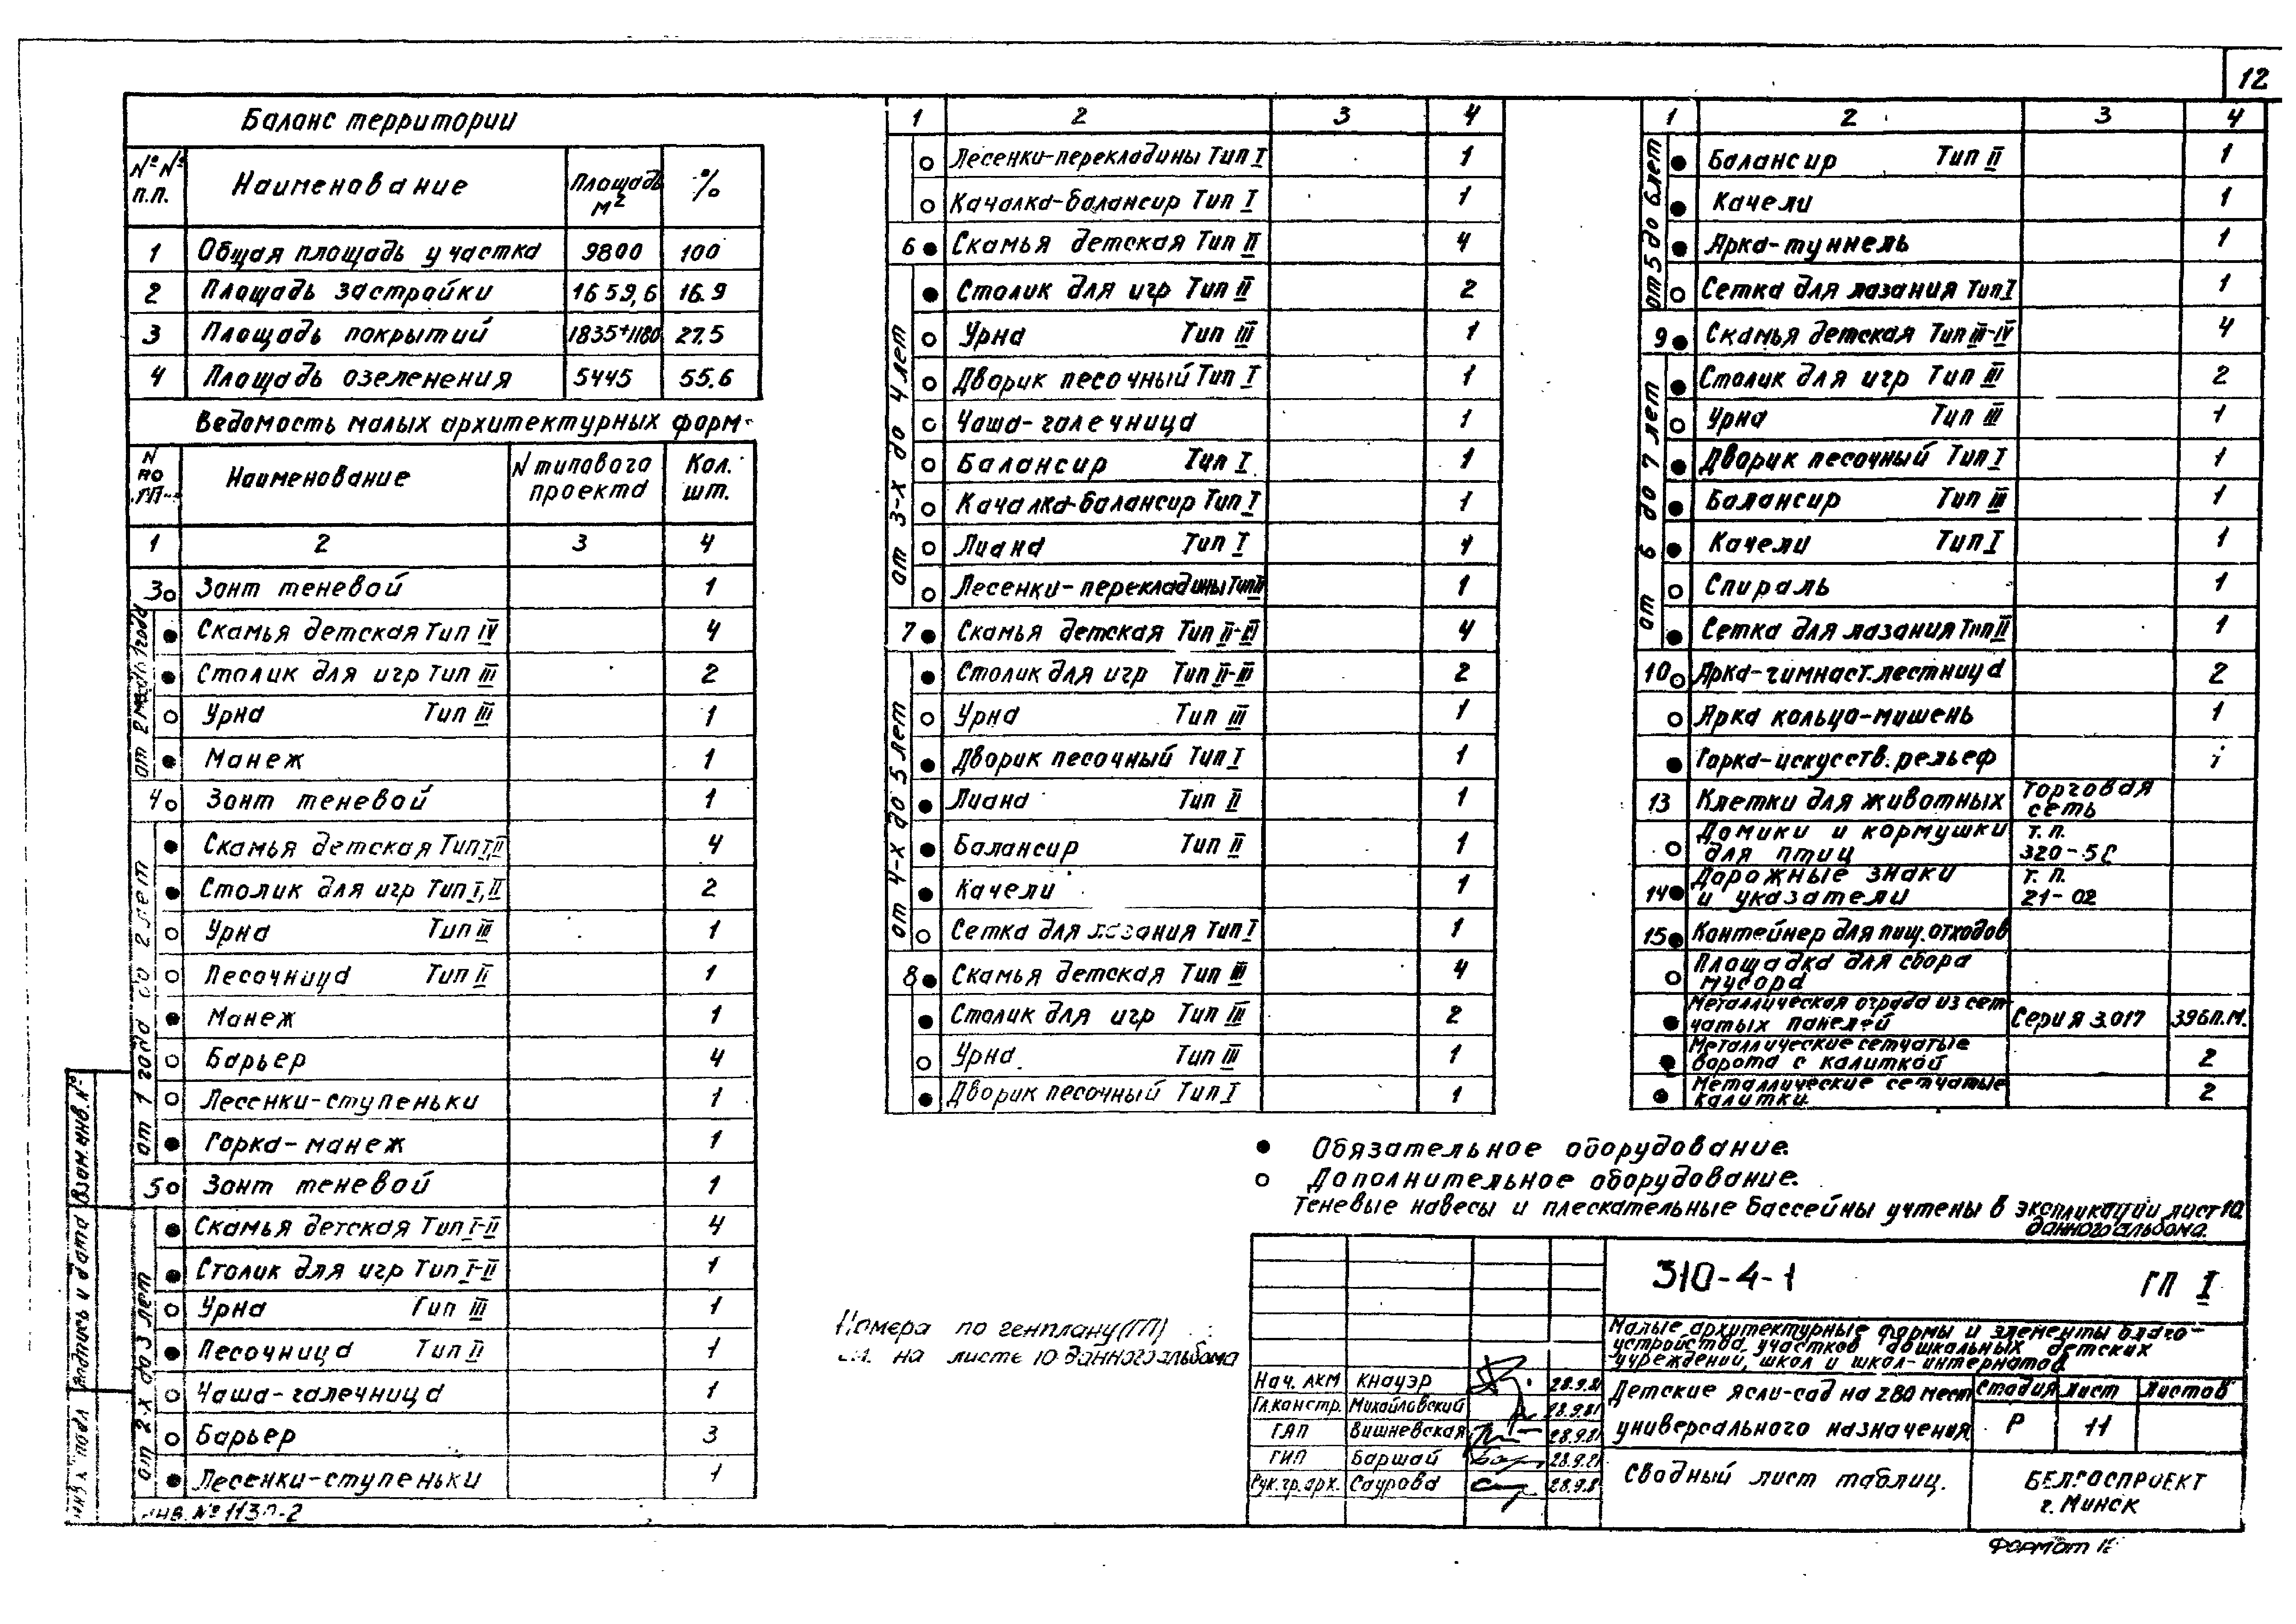 12
Баланс территории
№ № п.п. Наименование Площадь м² %
1 Общая площадь участка 9800 100
2 Площадь застройки 1659,6 16.9
3 Площадь покрытий 1835+1180 27.5
4 Площадь озеленения 5445 55.6
Ведомость малых архитектурных форм
N по ГП Наименование N типового проекта Кол. шт.
1 2 3 4
3 ○ Зонт теневой 1
от 2 мес. до 1 года
● Скамья детская Тип IV 4
● Столик для игр Тип III 2
○ Урна Тип III 1
● Манеж 1
4 ○ Зонт теневой 1
от 1 года до 2 лет
● Скамья детская Тип I,II 4
● Столик для игр Тип I,II 2
○ Урна Тип III 1
○ Песочница Тип II 1
● Манеж 1
○ Барьер 4
○ Лесенки-ступеньки 1
● Горка-манеж 1
5 ○ Зонт теневой 1
от 2-х до 3 лет
● Скамья детская Тип I-II 4
● Столик для игр Тип I-II 1
○ Урна Тип III 1
● Песочница Тип II 1
○ Чаша-галечница 1
○ Барьер 3
● Лесенки-ступеньки 1
1 2 3 4
○ Лесенки-перекладины Тип I 1
○ Качалка-балансир Тип I 1
6 ● Скамья детская Тип II 4
от 3-х до 4 лет
● Столик для игр Тип II 2
○ Урна Тип III 1
○ Дворик песочный Тип I 1
○ Чаша-галечница 1
○ Балансир Тип I 1
○ Качалка-балансир Тип I 1
○ Лиана Тип I 1
○ Лесенки-перекладины Тип II 1
7 ● Скамья детская Тип II-III 4
от 4-х до 5 лет
● Столик для игр Тип II-III 2
○ Урна Тип III 1
● Дворик песочный Тип I 1
● Лиана Тип II 1
● Балансир Тип II 1
● Качели 1
○ Сетка для лазания Тип I 1
8 ● Скамья детская Тип III 4
● Столик для игр Тип III 2
○ Урна Тип III 1
● Дворик песочный Тип I 1
1 2 3 4
от 5 до 6 лет
● Балансир Тип II 1
● Качели 1
● Арка-туннель 1
○ Сетка для лазания Тип I 1
9 ● Скамья детская Тип III-IV 4
от 6 до 7 лет
● Столик для игр Тип III 2
○ Урна Тип III 1
● Дворик песочный Тип I 1
● Балансир Тип III 1
● Качели Тип I 1
○ Спираль 1
● Сетка для лазания Тип II 1
10 ○ Арка-гимнаст. лестница 2
○ Арка кольцо-мишень 1
● Горка-искусств. рельеф 1
13 Клетки для животных Торговая сеть
○ Домики и кормушки для птиц т.п. 320-5С
14 ● Дорожные знаки и указатели т.п. 21-02
15 ● Контейнер для пищ. отходов
○ Площадка для сбора мусора
● Металлическая ограда из сетчатых панелей Серия 3.017 396п.м.
● Металлические сетчатые ворота с калиткой 2
● Металлические сетчатые калитки. 2
● Обязательное оборудование.
○ Дополнительное оборудование.
Теневые навесы и плескательные бассейны учтены в экспликации лист 10
данного альбома.
Номера по генплану (ГП)
см. на листе 10 данного альбома
310-4-1 ГП I
Малые архитектурные формы и элементы благо-
устройства участков дошкольных детских
учреждений, школ и школ-интернатов
Нач. АКМ Кнауэр 28.9.81
Гл.констр. Михайловский 28.9.81
ГАП Вишневская 28.9.81
ГИП Баршай 28.9.81
Рук.гр.арх. Саурова 28.9.8
Детские ясли-сад на 280 мест
универсального назначения
Стадия Лист Листов
Р 11
Сводный лист таблиц.
БЕЛГОСПРОЕКТ
г. Минск
Взам. инв. №
Подпись и дата
Инв. № подл
Инв. №
Формат